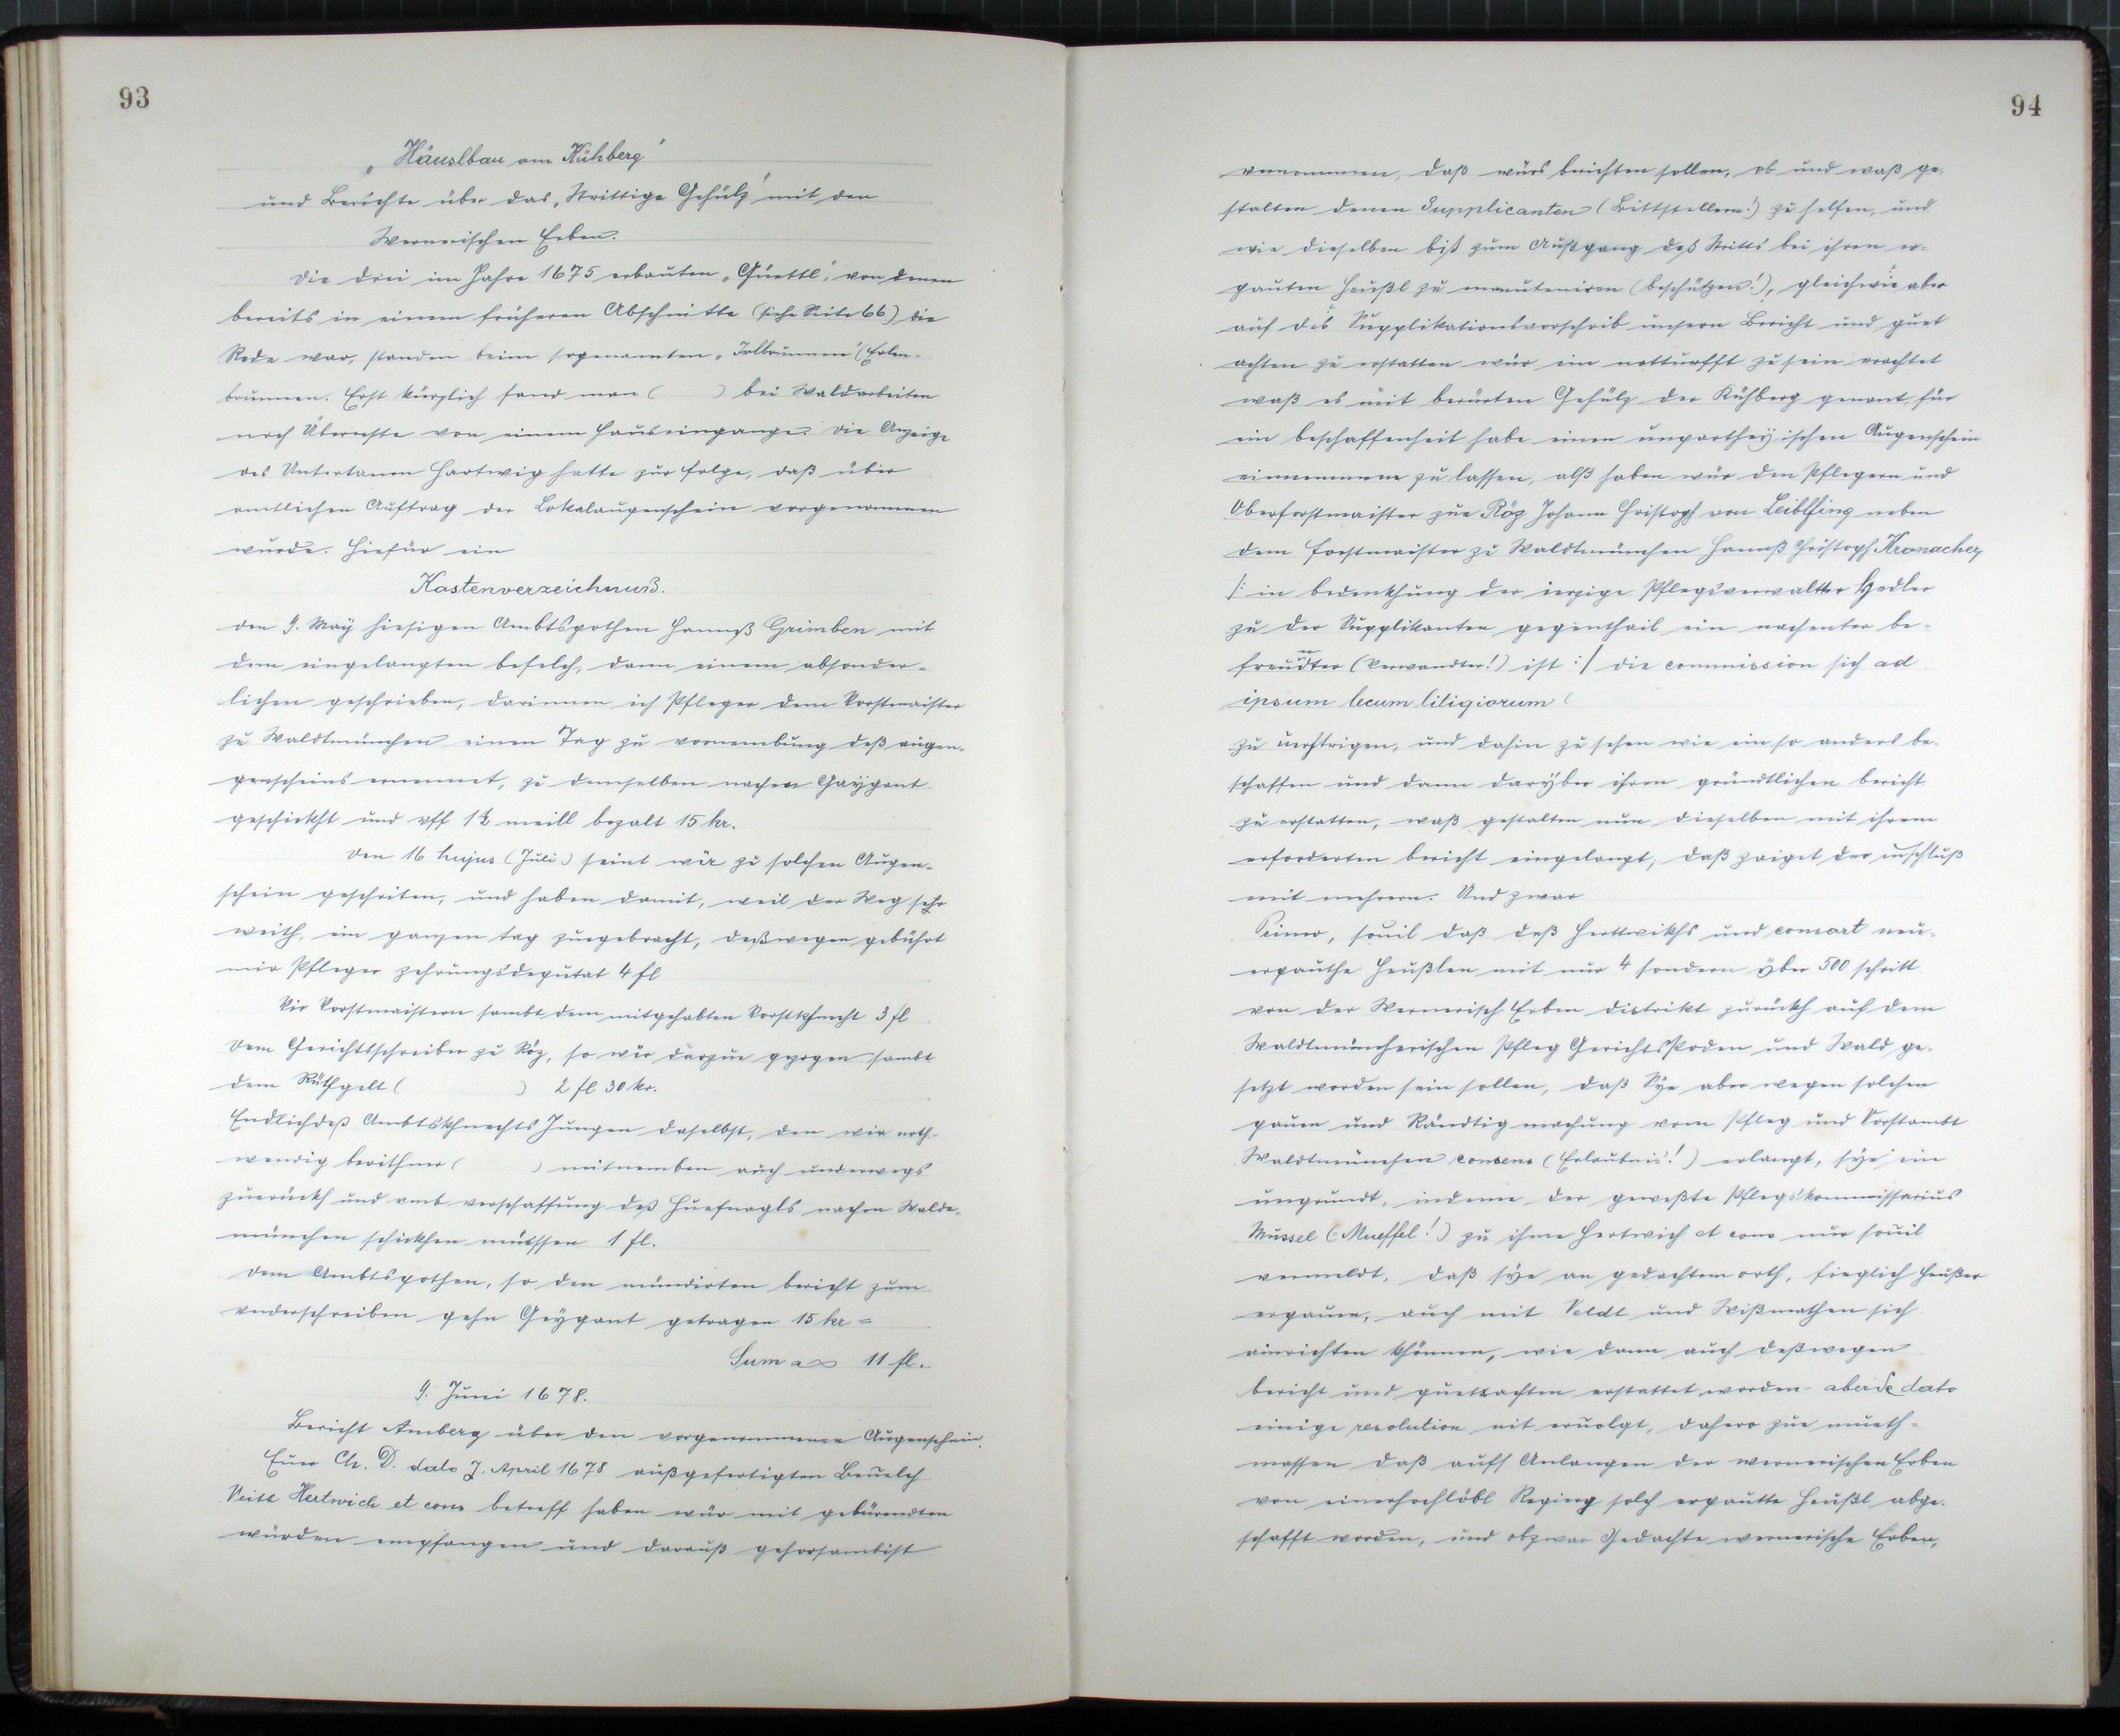 93
„Häuslbau am Kühberg"
und Berichte über das „Strittige Gehülz" mit den
Wernerischen Erben.
Die drei im Jahre 1675 erbauten „Güettl", von denen
bereits in einem früheren Abschnitte (siehe Seite 66) die
Rede war, standen beim sogenannten „Irlbrunnen" (Erlen-
brunnen. Erst kürzlich fand man (      ) bei Waldarbeiten
noch Überreste von einem Hauseingange. Die Anzeige
des Untertanen Hartwig hatte zur Folge, daß über
amtlichen Auftrag der Lokalaugenschein vorgenommen
wurde. Hiefür ein
Kostenverzeichnuß.
den 9. Maÿ hiesigen Ambtspothen Hannß Grimben mit
dem eingelangten befelch, dann einem absonder-
lichen geschrieben, darinnen ich Pfleger dem Vorstmaister
zu Waldtmünchen einen Tag zu vornembung deß augen-
genscheins ernennet, zu demselben nacher Gaÿgant
geschickht und vff 1½ meill bezalt 15 kr.
Den 16 hujus (Juli) seint wür zu solchen Augen-
schein geschriten, und haben damit, weil der Weg sehr
weith, ein ganzen tag zuegebracht, deßwegen gebührt
mir Pfleger zehrungsdeputat 4 fl
Vir Vorstmaistern sambt dem mitgehabten Vorstkhnecht 3 fl
Dem Gerichtsschreiber zu Röz, so wür darzue gezogen sambt
dem Rüthgelt (      ) 2 fl 30 kr.
Endlich deß Ambtskhnechts Jungen daselbst, den wir noth-
wendig berithner (      ) mitnemben auch underwegs
zuerückh und vmb verschaffung deß Huefnagls nachen Waldt-
münchen schickhen müessen 1 fl.
Dem Ambtspothen, so den mündirten bericht zum
vnderschreiben gehn Geÿgant getragen 15 kr =
Suma 11 fl.
9. Juni 1678.
Bericht Amberg über den vorgenommenen Augenschein.
Euer Ch. D. dato 7. April 1678 außgefertigten Beuelch
Veitt Hertwich et cons betreff haben wür mit gebürendten
würden empfangen und darauß gehorsambist
94
vernommen, daß würs berichten sollen, ob und waß ge-
stalten denen Supplicanten (Bittstellern!) zu helfen, und
wie dieselben biß zum Außgang deß Stritts bei ihren er-
pauten Heußl zu manuteniren (beschützen!), gleichwie aber
auf diß Supplikationsvorschrib unsern Bericht und guet
achten zu erstatten wür ein notturfft zu sein erachtet
waß es mit berürten Gehülz der Kühberg genant für
ein beschaffenheit habe einen unpartheÿischen Augenschein
einnemmen zu lassen, alß haben wür den Pflegern und
Oberforstmaister zue Röz Johann Christoph von Leiblfing neben
dem Forstmaister zu Waldtmünchen Hannß Christoph Kronacher,
/: in bedenkhung der iezige Pflegsverwaltter Hedler
zu der Supplikanten gegentheil ein nachenter be-
freundter (Verwandter!) ist :/ die commission sich ad
ipsum locum litigiorum (
zu uerfürgen, und dahin zu sehen wie ein so anders be-
schaffen und dann darÿber ihren gründtlichen bericht
zu erstatten, waß gestalten nun dieselben mit ihrem
erforderten bericht eingelangt, daß zaiget der inschluß
mit mehrern. Und zwar
Primo, souil daß deß Herttwikhs und consort neu-
erpauthe Heußlen mit nur 4 sondern ÿber 500 schritt
von der Wernerisch Erben distrikt zurückh auf dem
Waldtmüncherischen Pfleg Gerichts Poden und Wald ge-
sezt worden sein sollen, daß Sye aber wegen solchen
pauen und Räudtigmachung vom Pfleg und Vorstambt
Waldtmünchen consens (Erlaubnis!) erlangt, sÿe ein
ungrundt, indeme der geweßte Pflegskommissarius
Mussel (Mueffel!) zu ihme Hertwich et cons nur souil
vermeldt, daß sÿe an gedachtem orth, fieglich Heußer
erpauen, auch mit Veldt und Wißmathen sich
ainrichten khönnen, wie dann auch deßwegen
bericht und guetachten erstattet worden aber de dato
einige resolution nit eruolgt, dahero zue mueth-
massen daß aufs Anlangen der wernerischen Erben
von einer hochlöbl Regirg solch erpautte Heußl abge-
schafft worden, und obzwar Gedachte wernerische Erben,